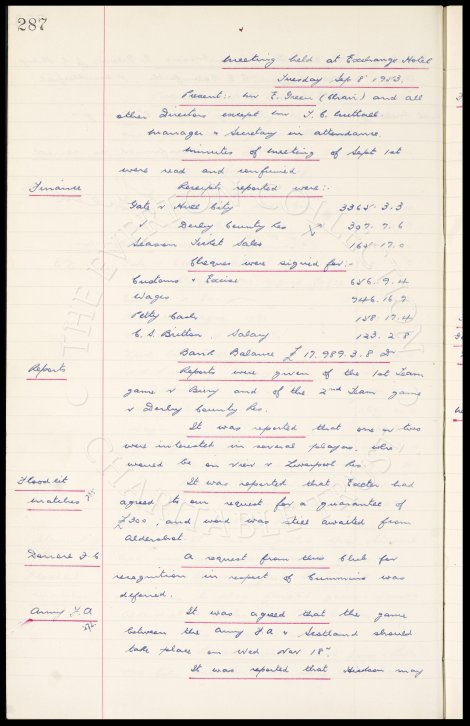 287
Meeting held at Exchange Hotel
Tuesday Sep 8th 1953.
Present:- Mr E. Green (Chair) and all
other Directors except Mr T. C. Nuttall.
Manager & Secretary in attendance.
Minutes of meeting of Sept 1st
were read and confirmed.
Finance
Receipts reported were:-
Gate v Hull City 3365. 3. 3
v Derby County Res 307. 7. 6
Season Ticket Sales 165. 17. 0
Cheques were signed for:-
Customs & Excise 656. 9. 4
Wages 746. 16. 2
Petty Cash 158. 17. 4
C. S. Britton, Salary 123. 2. 8
Bank Balance £ 17,989. 3. 8 Dr
Reports
Reports were given of the 1st Team
game v Bury and of the 2nd Team game
v Derby County Res.
It was reported that one or two
were interested in several players, who
would be on view v Liverpool Res.
Floodlit
matches
It was reported that Exeter had
agreed to our request for a guarantee of
£300, and word was still awaited from
Aldershot.
A request from this Club for
recognition in respect of Cummins was
deferred.
Army F.A
It was agreed that the game
between the Army F.A & Scotland should
take place on Wed Nov 18th.
It was reported that may
THE EVERTON COLLECTION
CHARITABLE TRUST